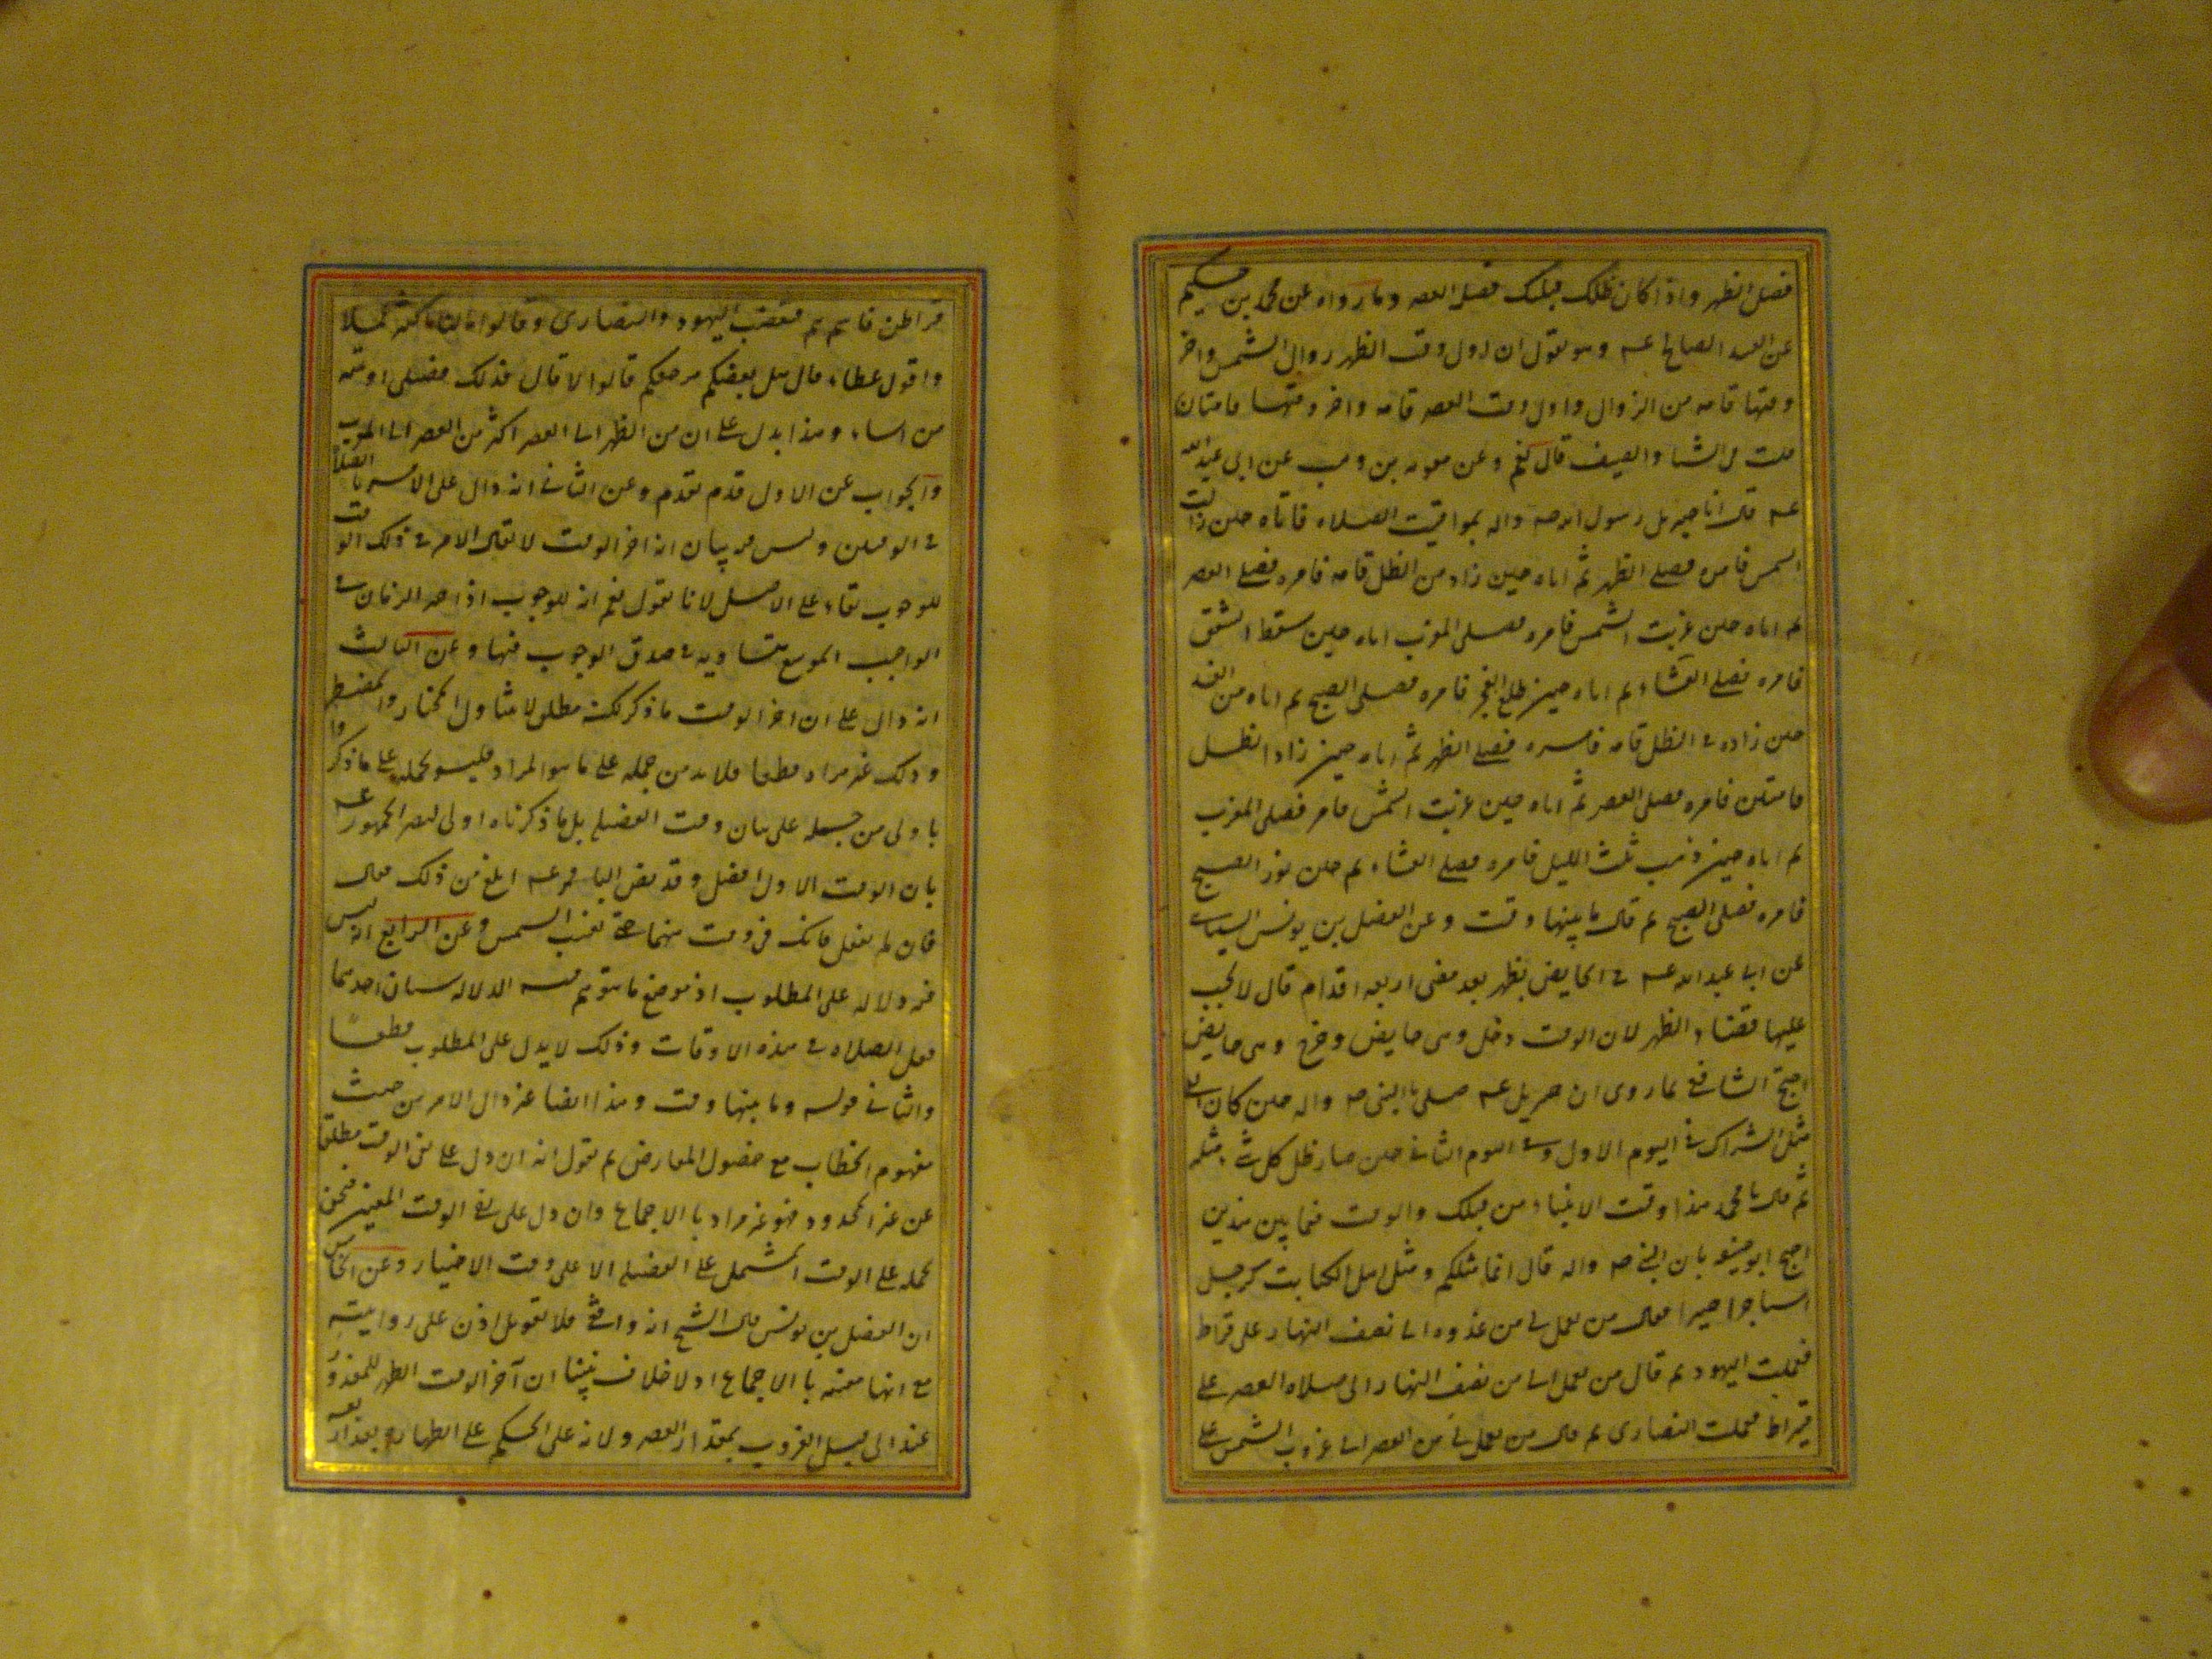 فصل الظهر واذا كان ظلك مثليك فصل العصر وما رواه عن محمد بن حكيم
عن العبد الصالح عـه وهو يقول ان اول وقت الظهر زوال الشمس واخر
وقتها قامه من الزوال واول وقت العصر قامه واخر وقتها قامتان
قلت في الشتا والصيف قال نعم وعن معويه بن وهب عن ابى عبد الله
عـه قال اتا جبريل رسول الله صـه واله بمواقيت الصلاه فاتاه حين زالت
الشمس فامره فصلى الظهر ثم اتاه حين زاد من الظل قامه فامره فصلى العصر
ثم اتاه حين غربت الشمس فامره فصلى المغرب اتاه حين سقط الشفق
فامره فصلى العشاء ثم اتاه حين طلع الفجر فامره فصلى الصبح ثم اتاه من الغد
حين زاد فى الظل قامه فامره فصلى الظهر ثم اتاه حين زاد الظل
قامتين فامره فصلى العصر ثم اتاه حين غربت الشمس فامر فصلى المغرب
ثم اتاه حين ذهب ثلث الليل فامره فصلى العشاء ثم حين نور الصبح
فامره فصلى الصبح ثم قال ما بينها وقت وعن الفضل بن يونس
عن ابى عبد الله عـه فى الحايض تطهر بعد مضى اربعه اقدام قال لا يجب
عليها قضاء الظهر لان الوقت دخل وهى حايض وخرج وهى حايض
احتج الشافعى بما روى ان جبريل عـه صلى بالنبى صـه واله حين كان الفى
مثل الشراك فى اليوم الاول وفى اليوم الثانى حين صار ظل كل شئ مثله
ثم قال يا محمد هذا وقت الانبياء من قبلك والوقت فيما بين هذين
احتج ابو حنيفه بان النبى صـه واله قال انما مثلكم ومثل اهل الكتابين كرجل
استاجر اجيرا فقال من يعمل لى من غدوه الى نصف النهار على قيراط
فعملت اليهود ثم قال من يعمل لى من نصف النهار الى صلاه العصر على
قيراط فعملت النصارى ثم قال من يعمل لى من العصر الى غروب الشمس على
قيراطين فانتم هم فغضب اليهود والنصارى وقالوا مالنا اكثر عملا
واقل عطاء قال هل نقصتكم من حقكم قالوا لا قال فذلك فضلى اوتيته
من اشاء وهذا يدل على ان من الظهر الى العصر اكثر من العصر الى المغرب
والجواب عن الاول قد تقدم وعن الثانى انه دال على الامر بالصلاة
فى الوقتين وليس فيه بيان انه اخر الوقت لا يقال الامر فى ذلك الوقت
للوجوب بقاء على الاصل لانا نقول نعم انه للوجوب اذ اجزاء الزمان فى
الواجب الموسع متساويه فى صدق الوجوب فيها وعن الثالث
انه دال على ان اخر الوقت ما ذكر لكنه مطلق لا يتناول المختار والمضطر
وذلك غير مراد قطعا فلا بد من حمله على ما هو المراد فليس حمله على ما ذكروا
باولى من حمله على بيان وقت الفضيله بل ما ذكرناه اولى
بان الوقت الاول افضل وقد نص الباقر عـه ابلغ من ذلك فقال
فان لم تفعل فانك فى وقت منهما حتى تغيب الشمس وعن الرابع انه ليس
فيه دلاله على المطلوب اذ موضع ما يتوهم فيه الدلاله شيئان احدهما
فعل الصلاه فى هذه الاوقات وذلك لا يدل على المطلوب قطعا
والثانى قوله وما بينها وقت وهذا ايضا غير دال الا من حيث
مفهوم الخطاب مع حصول المعارض ثم نقول انه ان دل على نفى الوقت مطلقا
عن غير المحدود فهو غير مراد بالاجماع وان دل على نفى الوقت المعين فنحن
نحمله على الوقت المشتمل على الفضيله لا على وقت الاختيار وعن الخامس
ان الفضل بن يونس قال الشيخ انه واقفى فلا تعويل اذن على روايته
مع انها منفيه بالاجماع اذ لا خلاف بيننا ان آخر الوقت الظهر للمعذور
عندالى قبل الغروب بمقدار العصر ولانه علق الحكم على الطهاره بعد اربعه